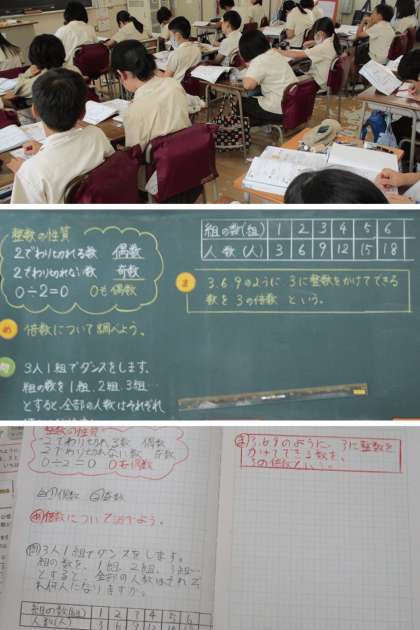 整数の性質
2でわり切れる数 偶数
2でわり切れない数 奇数
0÷2=0 0も偶数
め 倍数について調べよう。
問 3人1組でダンスをします。
組の数を1組、2組、3組…
とすると、全部の人数はそれぞれ
組の数(組) 1 2 3 4 5 6
人数(人) 3 6 9 12 15 18
ま 3.6.9のように 3に整数をかけてできる
数を 3の倍数 という。
整数の性質
2でわり切れる数 偶数
2でわり切れない数 奇数
0÷2=0 0も偶数
偶数 奇数
め 倍数について調べよう。
問 3人1組でダンスをします。
組の数を、1組、2組、3組…
とすると、全部の人数はそれぞ
れ何人になりますか。
組の数(組) 1 2 3 4 5 6
人数(人) 3 6 9 12 15 18
ま 3.6.9のように、3に整数を
かけてできる数を、
3の倍数という。